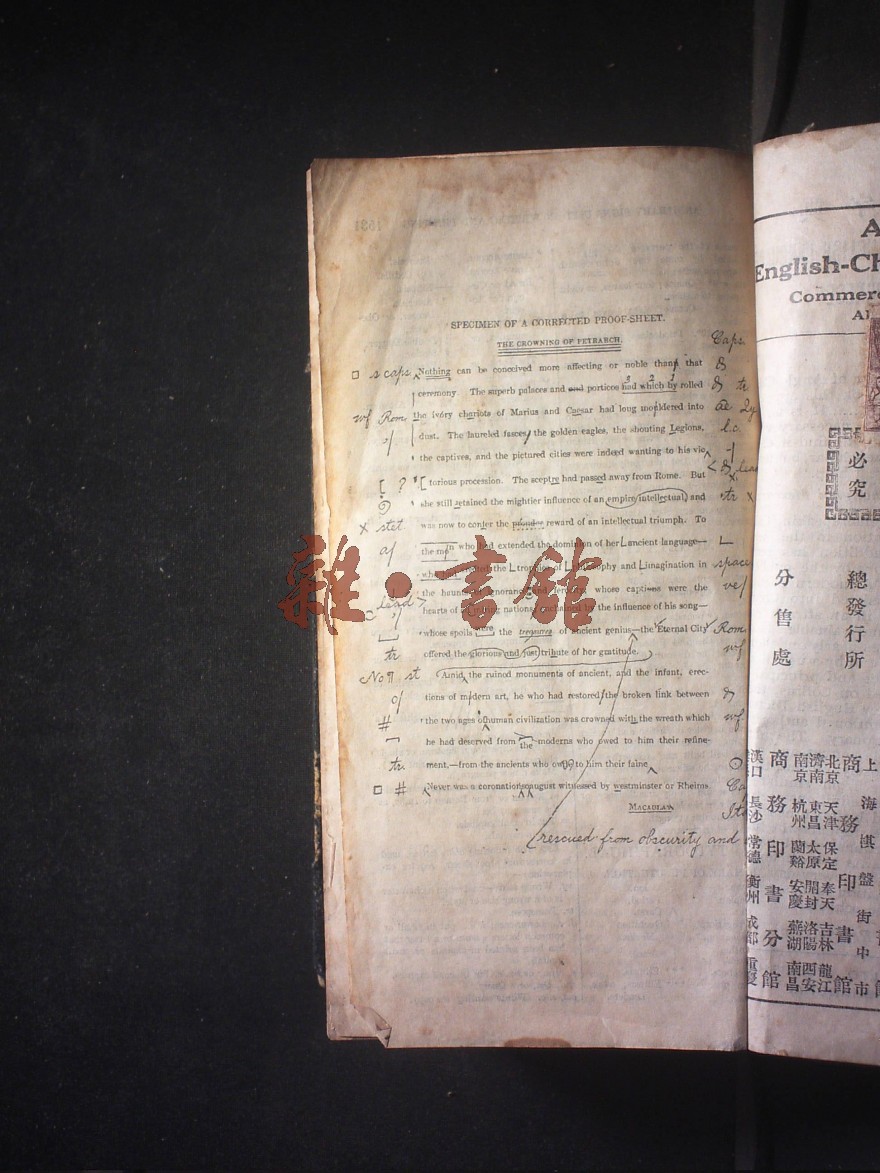 SPECIMEN OF A CORRECTED PROOF-SHEET.
THE CROWNING OF PETRARCH.
Caps.
□ s caps Nothing can be conceived more affecting or noble than that
ceremony. The superb palaces and and porticoes had which by rolled tr
wf Rom the ivory chariots of Marius and Caesar had long mouldered into ae
dust. The laureled fasces, the golden eagles, the shouting Legions, l.c.
the captives, and the pictured cities were indeed wanting to his vic
[ ? torious procession. The sceptre had passed away from Rome. But
she still retained the mightier influence of an empire intellectual, and tr x
x stet was now to confer the prouder reward of an intellectual triumph. To
the men who had extended the dominion of her ancient language—
the trophies of philosophy and imagination in space
the haunts of ignorance and ferocity, whose captives were the
lead hearts of nations by the influence of his song—
whose spoils were the treasures of ancient genius—the Eternal City Rom
tr offered the glorious and just tribute of her gratitude. wf
No ¶ st Amid the ruined monuments of ancient, and the infant, erec-
tions of modern art, he who had restored the broken link between
# the two ages of human civilization was crowned with the wreath which wf
he had deserved from the moderns who owed to him their refine-
tr. ment,—from the ancients who owed to him their fame
□ # Never was a coronation so august witnessed by westminster or Rheims
MACAULAY.
rescued from obscurity and
雜·書館
English-Ch
Commerc
必究
總發行所
分售處
上海棋盤街中市
商務印書館
商務印書分館
北京 天津 保定 奉天 吉林 龍江
濟南 東昌 太原 開封 洛陽 西安
南京 杭州 蘭谿 安慶 蕪湖 南昌
漢口 長沙 常德 衡州 成都 重慶